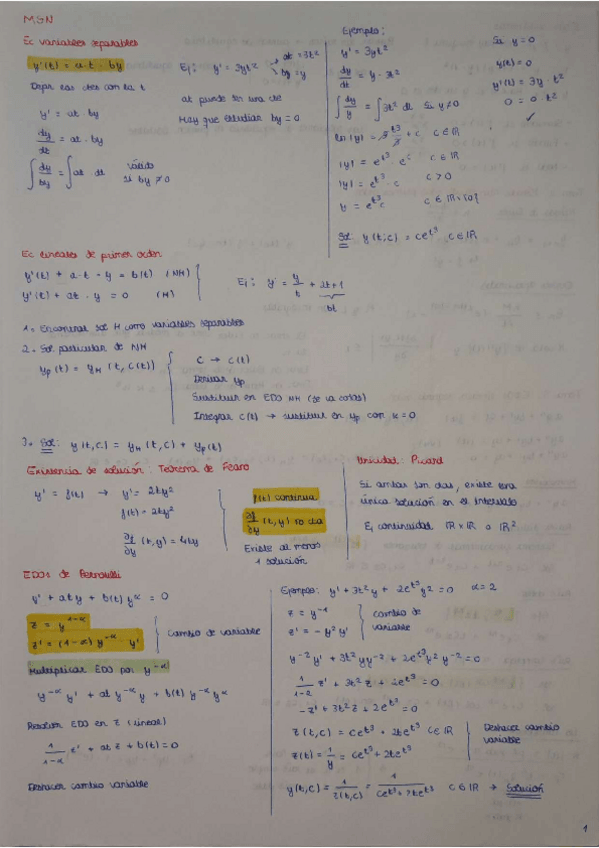 MGN
Ec variables separables
y'(t) = a·t · by
Ej: y' = 3yt²
at = 3t²
by = y
Dejar las ctes con la t
y' = at by
at puede ser una cte
Hay que estudiar by = 0
dy/dt = at · by
∫ dy/by = ∫ at dt
válido si by ≠ 0
Ejemplo:
y' = 3yt²
dy/dt = y · 3t²
∫ dy/y = ∫ 3t² dt Si y ≠ 0
ln|y| = 3 t³/3 + c c ∈ ℝ
|y| = e^t³ · e^c c ∈ ℝ
|y| = e^t³ · c c > 0
y = e^t³ c c ∈ ℝ \ {0}
Sol: y(t,c) = ce^t³ c ∈ ℝ
Si y = 0
y(t) = 0
y'(t) = 3y · t²
0 = 0 · t²
✓
Ec lineales de primer orden
y'(t) + a·t · y = b(t) (NH)
y'(t) + at · y = 0 (H)
Ej: y' = y/t + 2t+1
bt
1= Encontrar sol H como variables separables
2= Sol particular de NH
yp(t) = yH (t, c(t))
C → C(t)
Derivar yp
Sustituir en EDO NH (se va c(t))
Integrar c'(t) → sustituir en yp con k = 0
3= Sol: y(t,c) = yH(t,c) + yp(t)
Existencia de solución: Teorema de Peano
y' = f(t) → y' = 2ty²
f(t) = 2ty²
∂f/∂y (t,y) = 4ty
f(t) continua
∂f/∂y (t,y) no cta
Existe al menos
1 solución
Unicidad: Picard
Si ambas son ctas, existe una
única solución en el intervalo
Ej continuidad ℝ×ℝ o ℝ²
EDOs de Bernoulli
y' + aty + b(t) y^α = 0
z = y^1-α
z' = (1-α) y^-α y'
Cambio de variable
Multiplicar EDO por y^-α
y^-α y' + at y^-α y + b(t) y^-α y^α
Resolver EDO en z (lineal)
1/1-α z' + at z + b(t) = 0
Deshacer cambio variable
Ejemplo: y' + 3t²y + 2e^t³ y² = 0 α = 2
z = y^-1
z' = -y² y'
cambio de
variable
y^-2 y' + 3t² y y^-2 + 2e^t³ y² y^-2 = 0
1/1-2 z' + 3t² z + 2e^t³ = 0
-z' + 3t² z + 2e^t³ = 0
z(t,c) = ce^t³ + 2te^t³ c ∈ ℝ
z(t) = 1/y = ce^t³ + 2te^t³
Deshacer cambio
variable
y(t,c) = 1/z(t,c) = 1/ce^t³ + 2te^t³ c ∈ ℝ → Solución
1